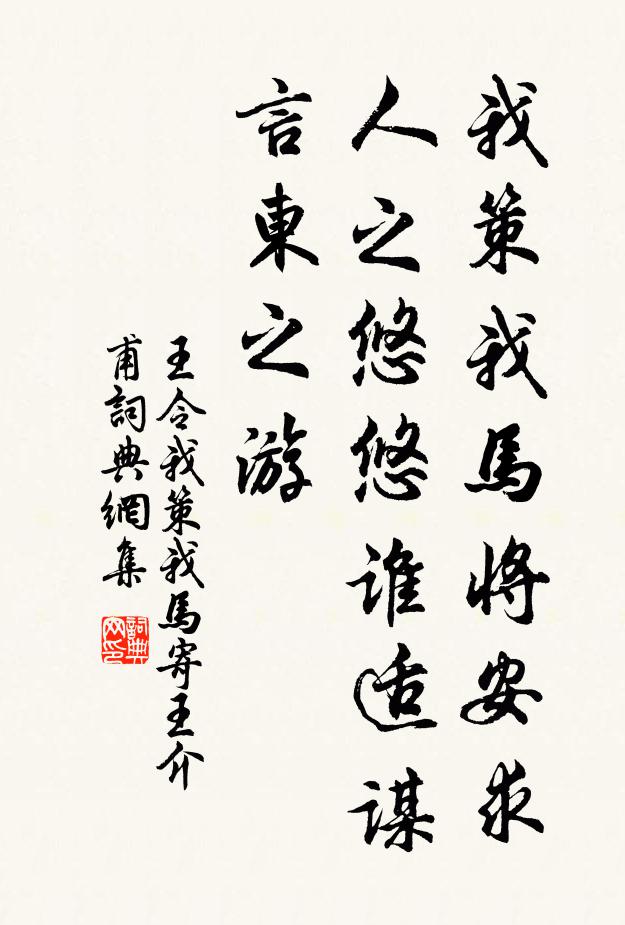 我策我馬將安求
人之悠悠誰适謀
言東之游
王令我策我馬寄王介
甫詞典網集
詞典
网印